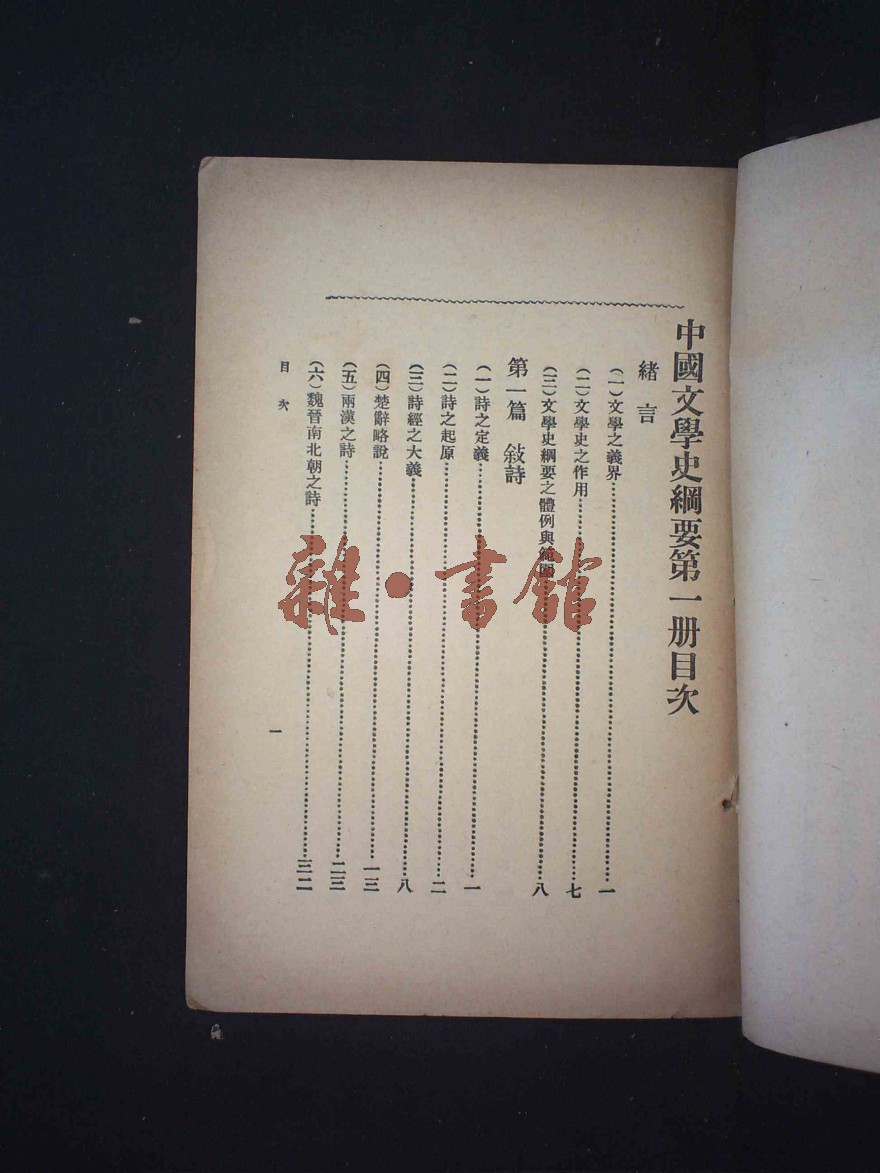 中國文學史綱要第一册目次
緒言
(一)文學之義界……一
(二)文學史之作用……七
(三)文學史綱要之體例與範圍……八
第一篇 敍詩
(一)詩之定義……一
(二)詩之起原……二
(三)詩經之大義……八
(四)楚辭略說……一三
(五)兩漢之詩……二三
(六)魏晉南北朝之詩……三二
目次
一
雜·書館